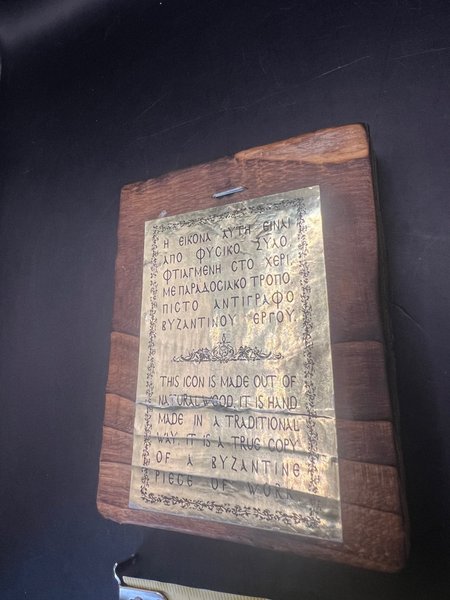 Η ΕΙΚΟΝΑ ΑΥΤΗ ΕΙΝΑΙ
ΑΠΟ ΦΥϹΙΚΟ ΞΥΛΟ,
ΦΤΙΑΓΜΕΝΗ ϹΤΟ ΧΕΡΙ,
ΜΕ ΠΑΡΑΔΟϹΙΑΚΟ ΤΡΟΠΟ,
ΠΙϹΤΟ ΑΝΤΙΓΡΑΦΟ
ΒΥΖΑΝΤΙΝΟΥ ΕΡΓΟΥ,
THIS ICON IS MADE OUT OF
NATURAL WOOD, IT IS HAND
MADE IN A TRADITIONAL
WAY. IT IS A TRUE COPY
OF A BYZANTINE
PIECE OF WORK